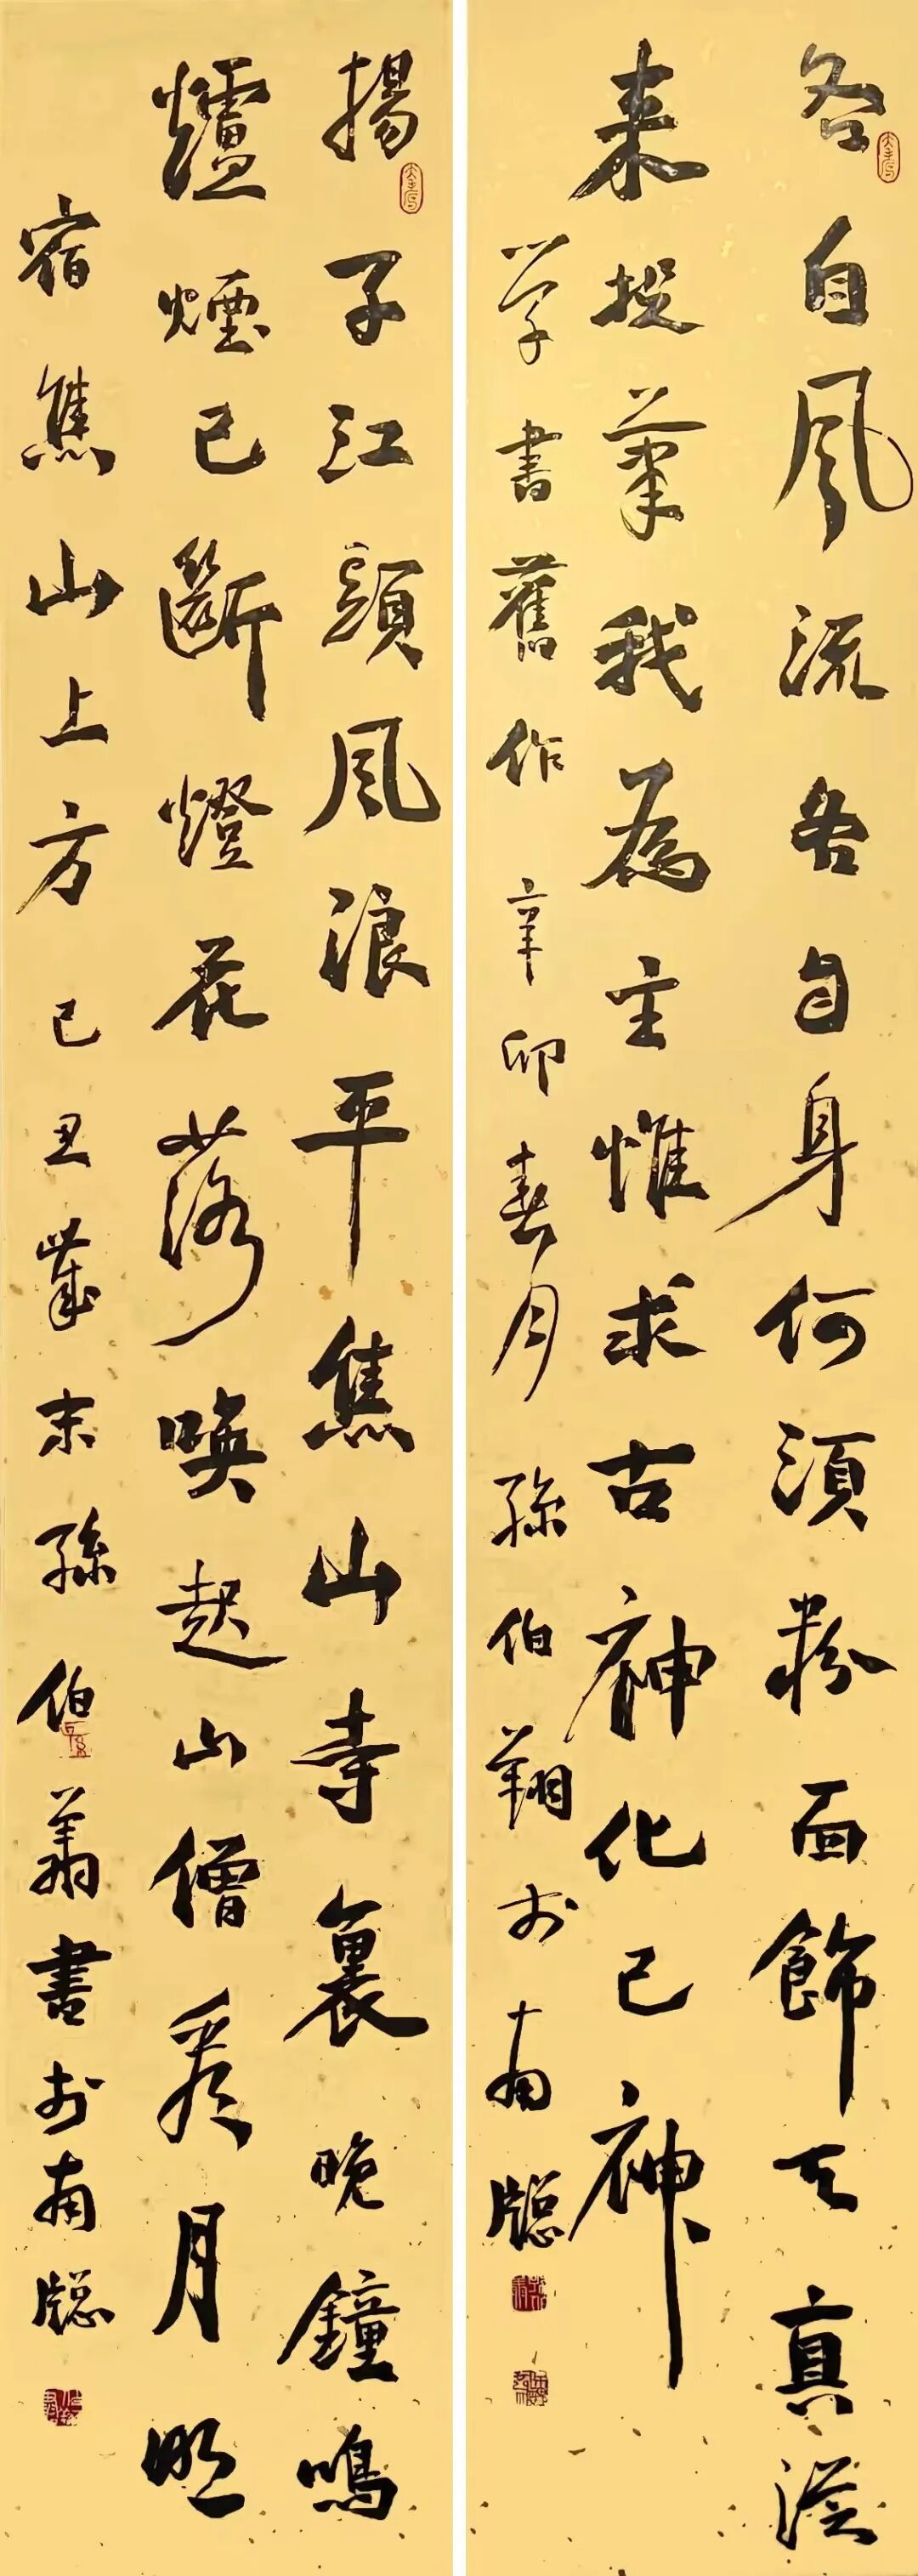 各自風流各自身何須粉面飾天真從
来捉筆我為主惟求古神化己神
学書舊作辛卯春月孫伯翔於南牕
揚子江頭風浪平焦山寺裏晚鐘鳴
爐煙已斷燈花落喚起山僧看月明
宿焦山上方己丑歲末孫伯翁書於南牕